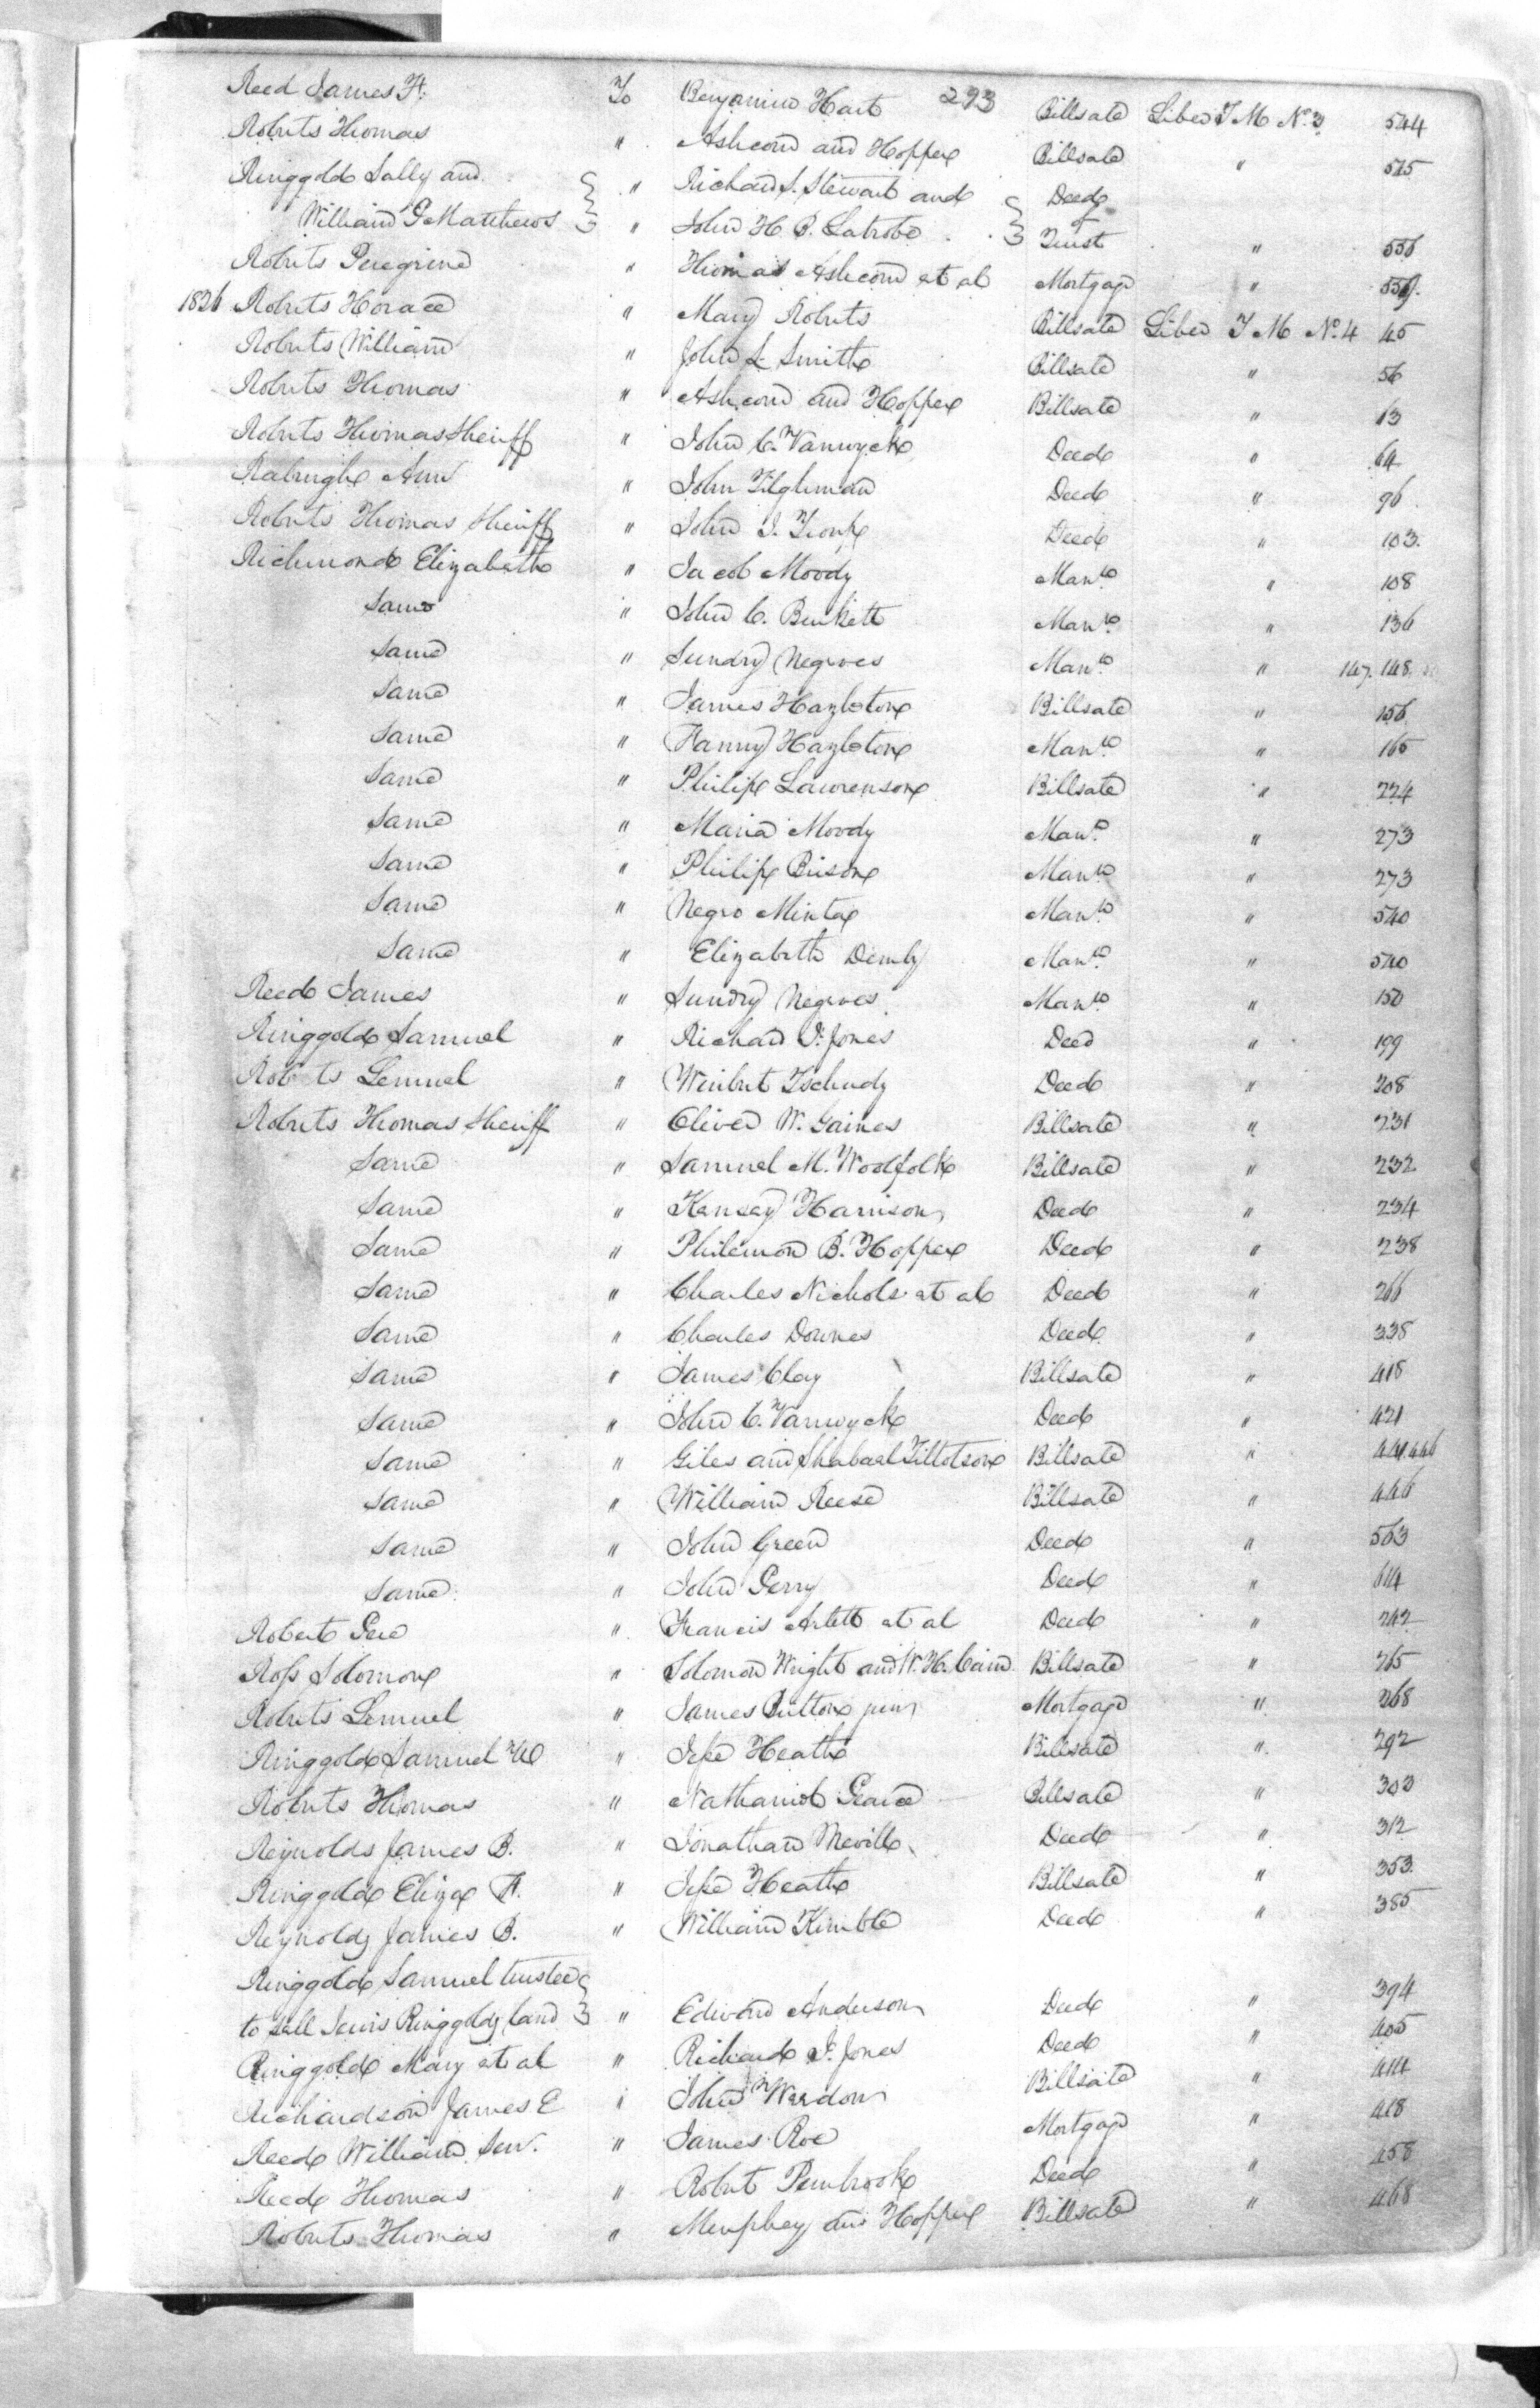 293
Reed James H. To Benjamin Hart Billsale Liber T M No. 3 544
Roberts Thomas " Ashcom and Hopper Billsale " 545
Ringgold Sally and " Richard S. Stewart and Deed
William P Matthews " John H. B. Latrobe Trust " 556
Roberts Peregrine " Thomas Ashcom et al Mortgage " 559
1826 Roberts Horace " Mary Roberts Billsale Liber T M No. 4 45
Roberts William " John L Smith Billsale " 56
Roberts Thomas " Ashcom and Hopper Billsale " 63
Roberts Thomas Sheriff " John C. Vanwyck Deed " 64
Ann " John Tilghman Deed " 96
Roberts Thomas Sheriff " John I. Deed " 103.
Richmond Elizabeth " Jacob Moody Man.to " 108
Same " John C. Burkett Man.to " 136
Same " Sundry Negroes Man.to " 147. 148.
Same " James Hazleton Billsale " 156
Same " Fanny Hazleton Man.to " 165
Same " Philip Lawrenson Billsale " 224
Same " Maria Moody Man.to " 273
Same " Philip Man.to " 273
Same " Negro Minta Man.to " 540
Same " Elizabeth Demby Man.to " 540
Reed James " Sundry Negroes Man.to " 150
Ringgold Samuel " Richard I. Jones Deed " 199
Roberts Lemuel " Winbert Tschudy Deed " 208
Roberts Thomas Sheriff " Oliver W. Gaines Billsale " 231
Same " Samuel M. Woolfolk Billsale " 232
Same " Kensey Harrison Deed " 234
Same " Philemon B. Hopper Deed " 238
Same " Charles Nichols et al Deed " 266
Same " Charles Downes Deed " 338
Same " James Clay Billsale " 418
Same " John C. Vanwyck Deed " 421
Same " Giles and Shabaal Tillotson Billsale " 441.446
Same " William Reese Billsale " 446
Same " John Green Deed " 563
Same " John Perry Deed " 614
Robert Pere " Francis Arlett et al Deed " 242
Ross Solomon " Solomon Wright and W. H. Cain Billsale " 265
Roberts Lemuel " James Button junr Mortgage " 268
Ringgold Samuel W " Jesse Heath Billsale " 292
Roberts Thomas " Nathaniel Pearce Billsale " 303
Reynolds James B. " Jonathan Nevill Deed " 312
Ringgold Eliza A. " Jesse Heath Billsale " 353
Reynolds James B. " William Kimble Deed " 385
Ringgold Samuel trustee
to sell Ringgolds land " Edward Anderson Deed " 394
Ringgold Mary et al " Richard I. Jones Deed " 405
Richardson James E " John Werdon Billsale " 414
Reed William Senr. " James Roe Mortgage " 418
Reed Thomas " Robert Pembrook Deed " 458
Roberts Thomas " and Hopper Billsale " 468